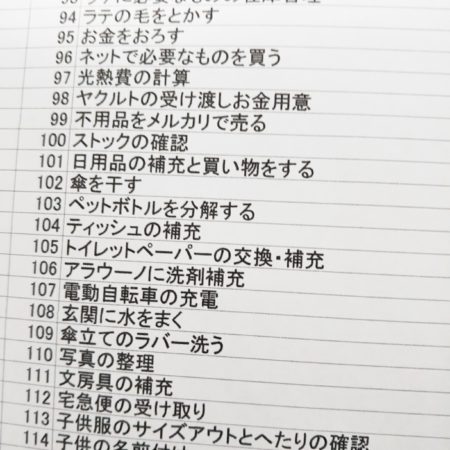 94 ラテの毛をとかす
95 お金をおろす
96 ネットで必要なものを買う
97 光熱費の計算
98 ヤクルトの受け渡しお金用意
99 不用品をメルカリで売る
100 ストックの確認
101 日用品の補充と買い物をする
102 傘を干す
103 ペットボトルを分解する
104 ティッシュの補充
105 トイレットペーパーの交換・補充
106 アラウーノに洗剤補充
107 電動自転車の充電
108 玄関に水をまく
109 傘立てのラバー洗う
110 写真の整理
111 文房具の補充
112 宅急便の受け取り
113 子供服のサイズアウトとへたりの確認
114 子供の名前付け